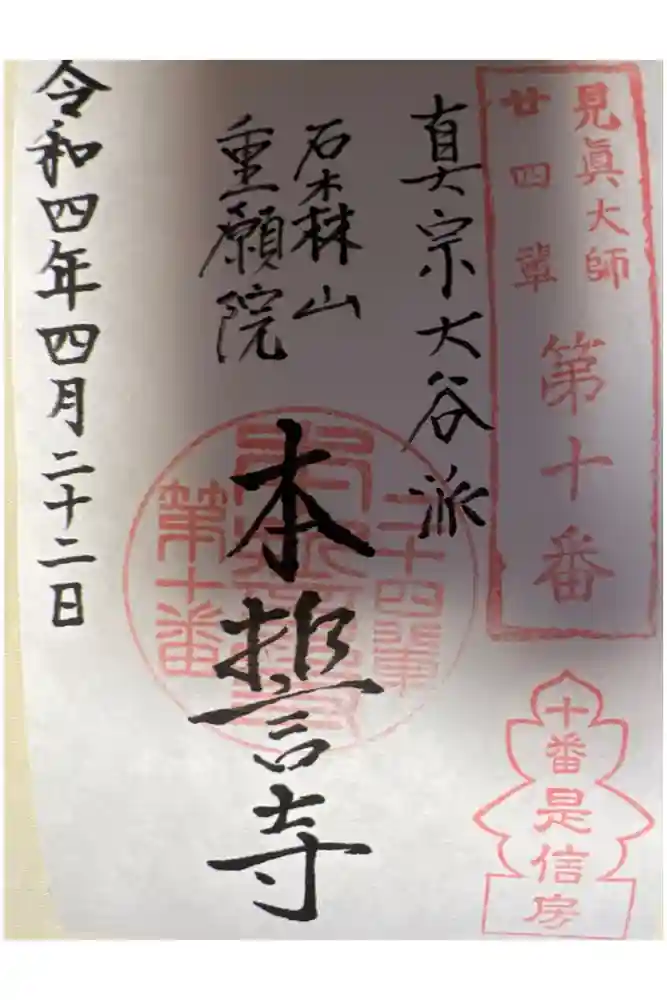 見眞大師
廿四輩
第十番
十番
是信房
真宗大谷派
石森山
重願院
本誓寺
二十四輩
第十番
令和四年四月二十二日